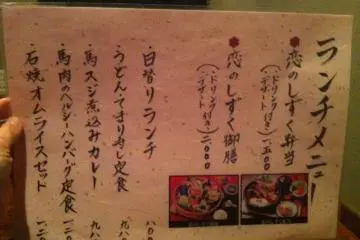 ランチメニュー
恋のしずく弁当
(ドリンク付き・デザート付) 一、五〇〇
恋のしずく御膳
(ドリンク付き・デザート付) 二、〇〇〇
日替りランチ 八〇〇
うどんてまり寿し定食 九八
馬スジ煮込みカレー 九八
馬肉のヘルシーハンバーグ定食 一、二
石焼オムライスセット 一、二